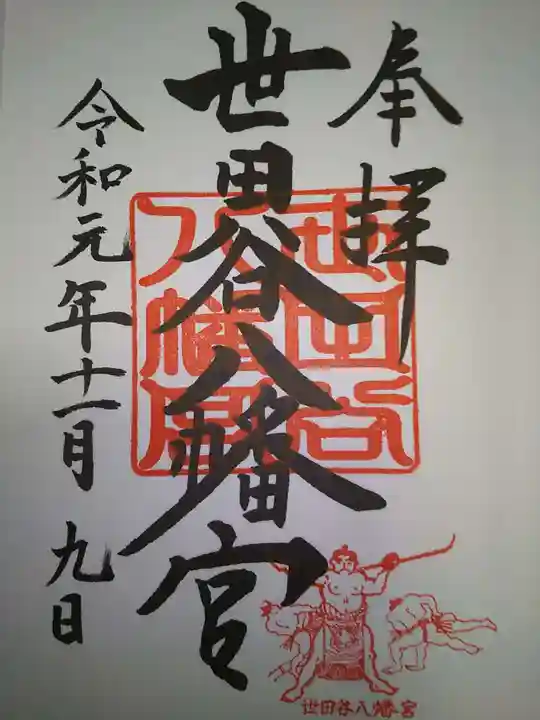 奉拝
世田谷八幡宮
令和元年十一月九日
世田谷
八幡宮
世田谷八幡宮